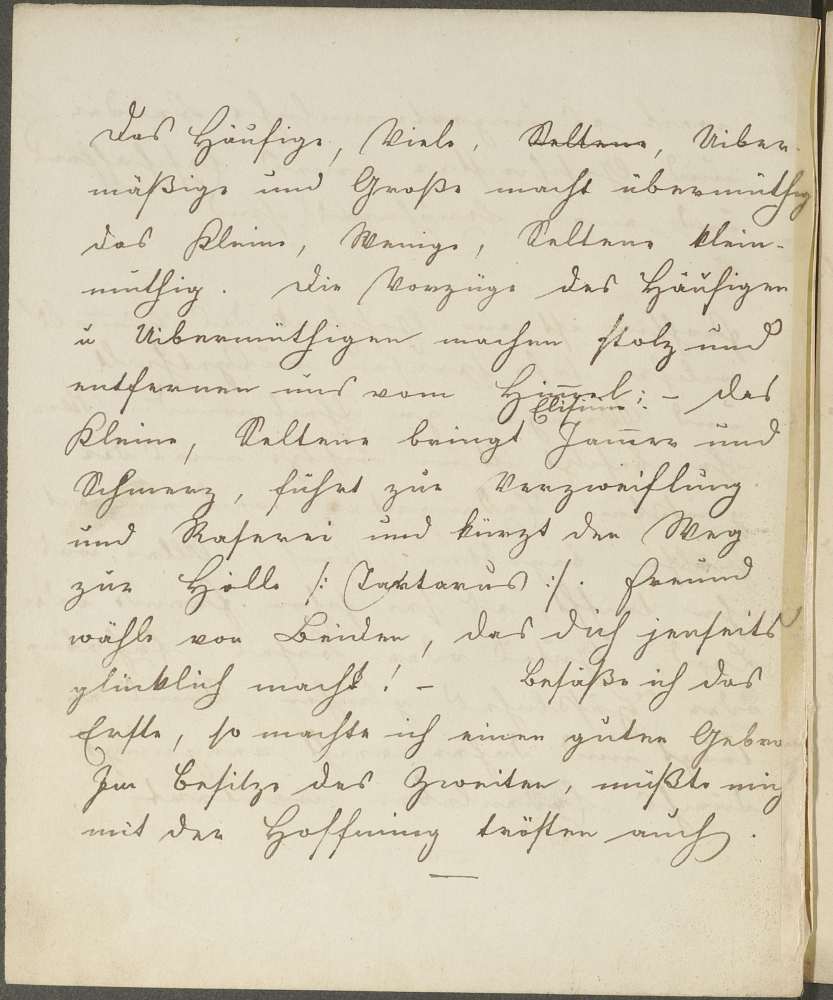 Das Häufige, Viele, Seltene, Uiber-
mäßige und Große macht übermüthig
das Kleine, Wenige, Seltene klein-
müthig. Die Vorzüge des Häufigen
u Uibermüthigen machen stolz und
entfernen uns vom Him̄el; - das
Elisium
Kleine, Seltene bringt Jam̄er und
Schmerz, führt zur Verzweiflung
und Raserei und kürzt den Weg
zur Hölle /: Tartarus :/. Freund
wähle von Beiden, das dich jenseits
glücklich macht! - Besäße ich das
Erste, so machte ich einen guten Gebra
Im Besitze des Zweiten, müßte mich
mit der Hoffnung trösten auch.